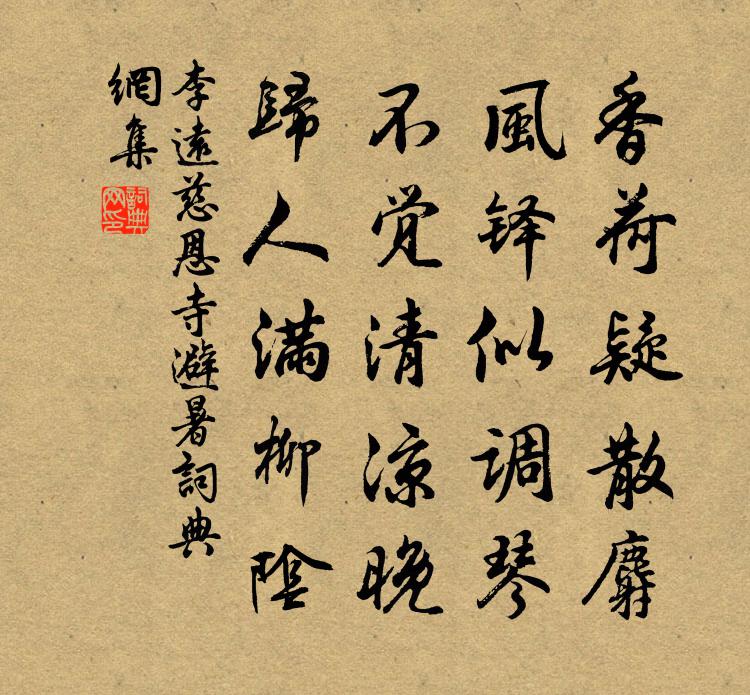 香荷疑散麝
風铎似调琴
不觉清凉晚
歸人满柳陰
李遠慈恩寺避暑詞典
網集
詞典
网印